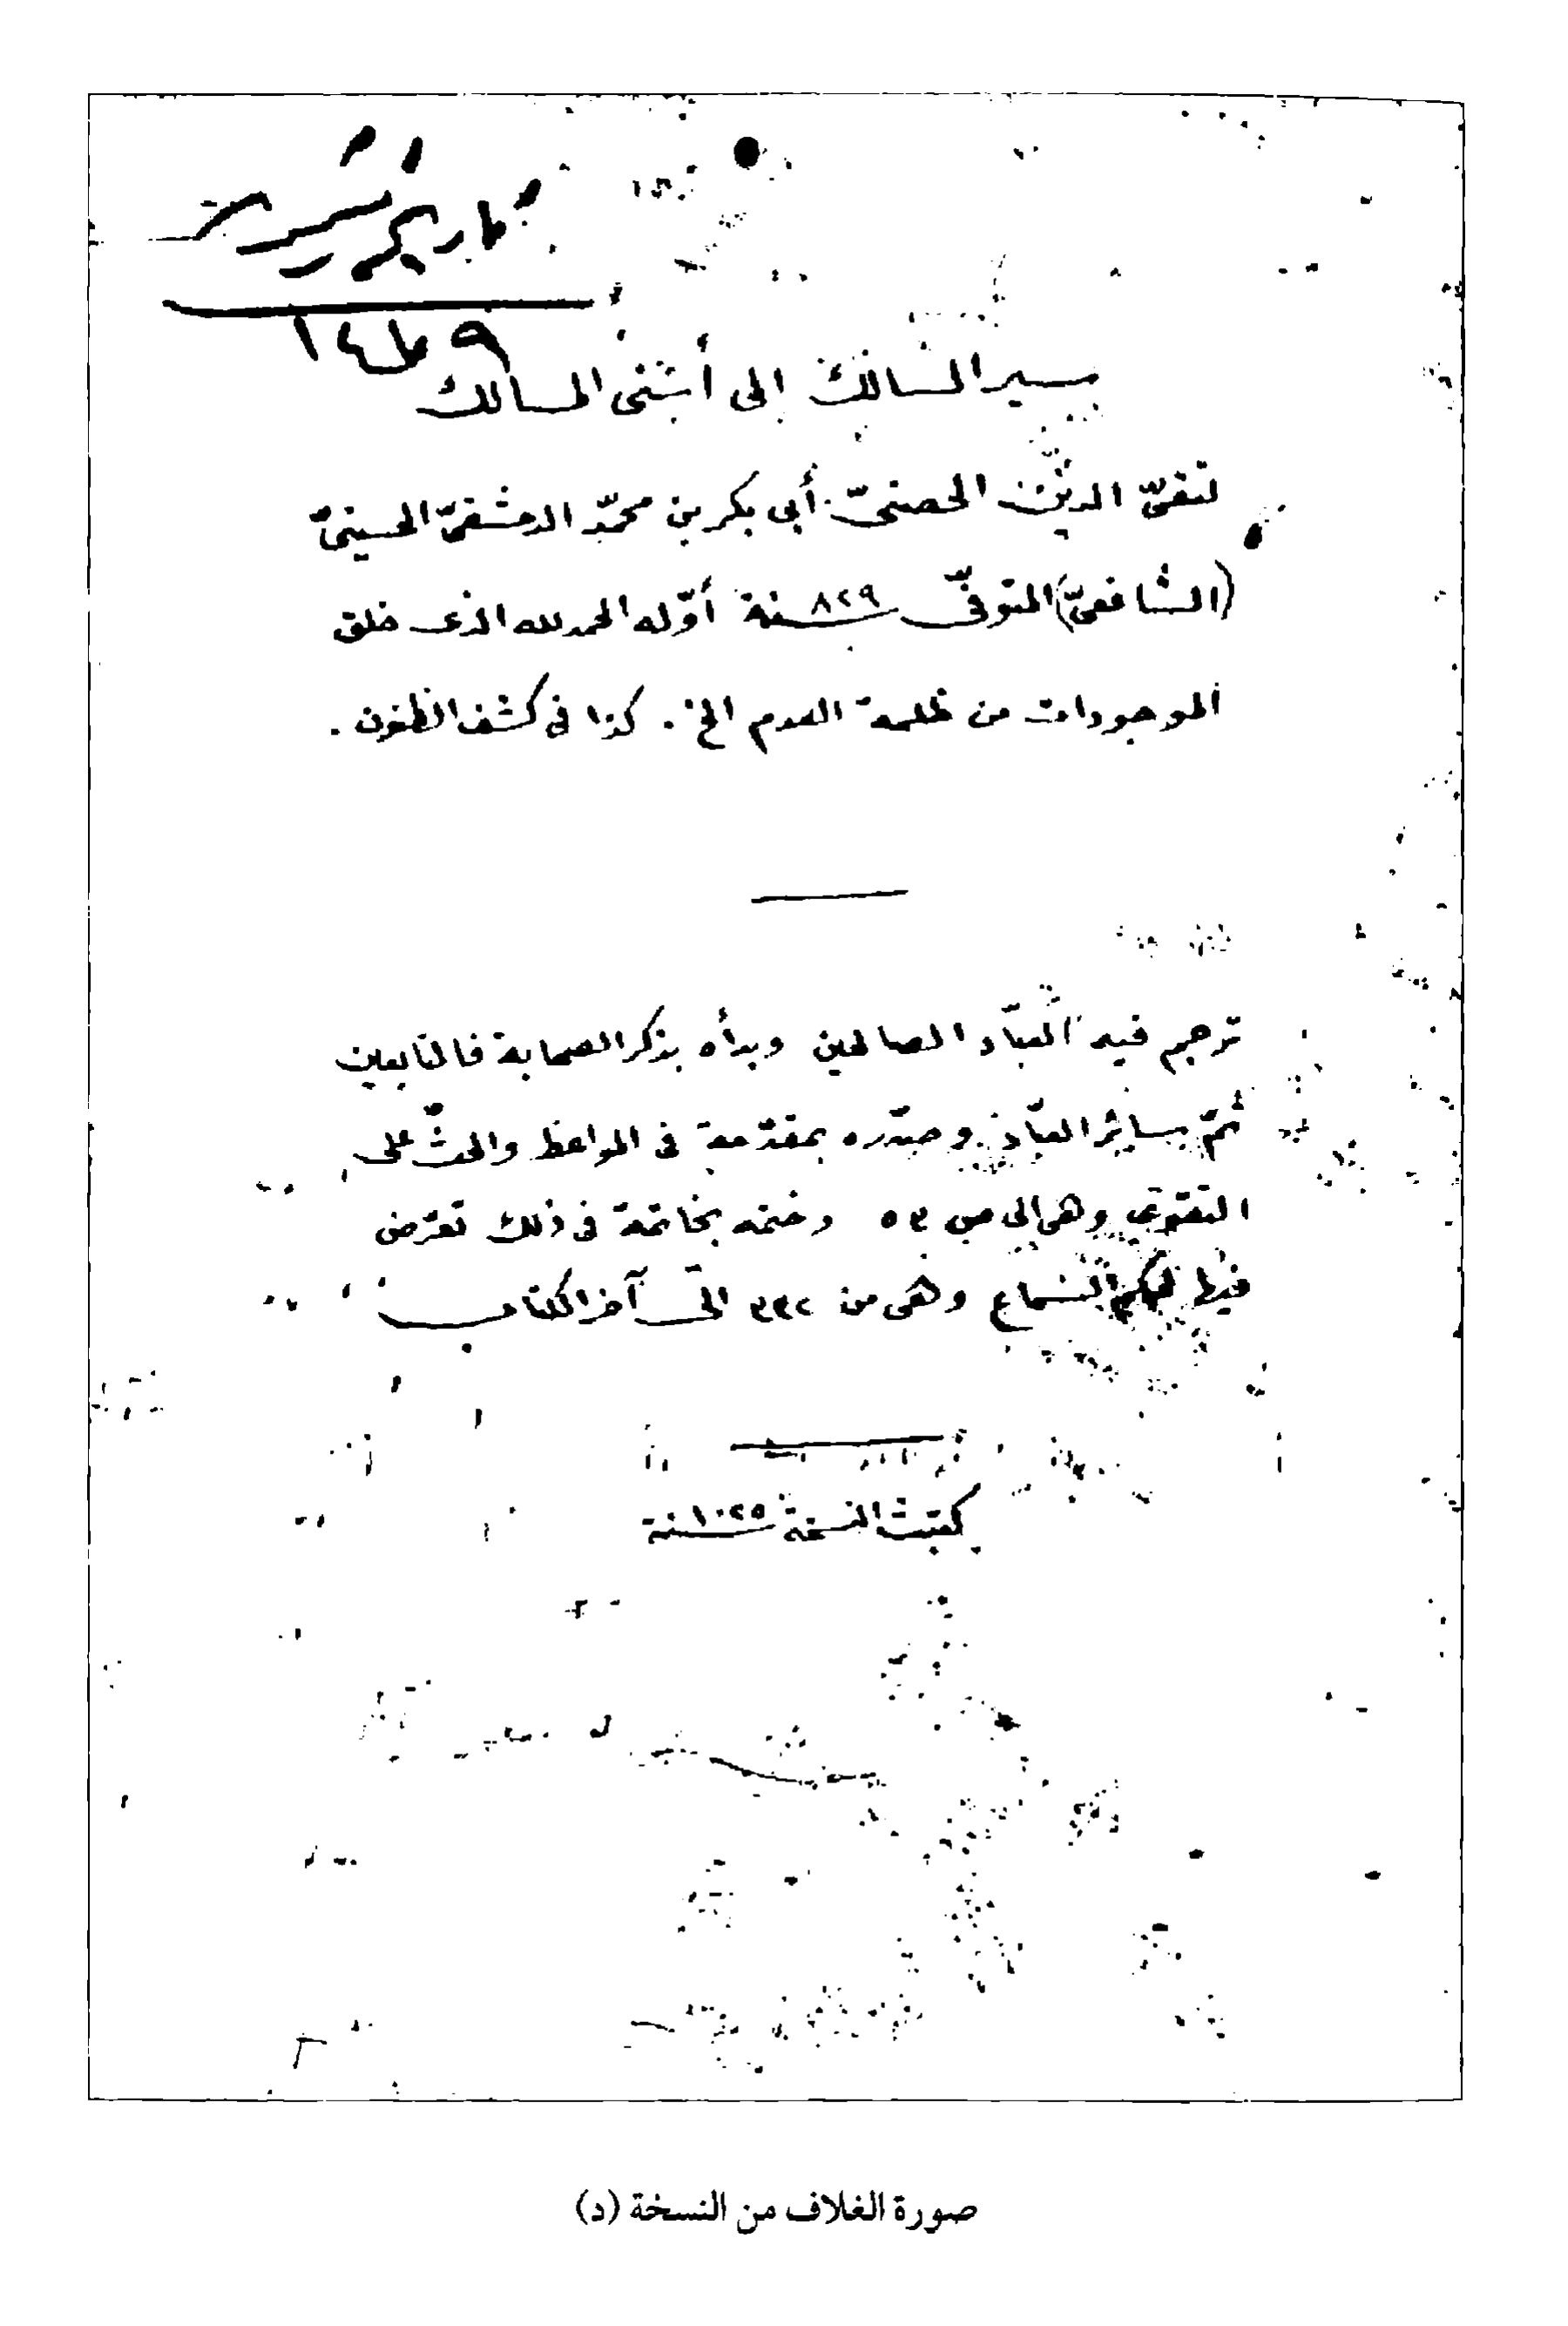 تاريخ
سير السالك إلى أسنى المسالك
لتقىّ الدين الحصنىّ أبى بكر بن محمّد الدمشقىّ الحسينىّ
(الشافعىّ) المتوفّى سنة ٨٢٩ أوّله الحمد لله الذى خلق
الموجودات من ظلمة العدم الخ. كذا فى كشف الظنون.
ترجم فيه العبّاد الصالحين وبدأه بذكر الصحابة فالتابعين
ثمّ بسائر العبّاد وصدّره بمقدّمة فى المواعظ والحثّ على
التقوى وهى إلى ص ٥٣ وختمه بخاتمة فى ذلك تعرّض
فيها لحكم السماع وهى من ٣٣٢ الى آخر الكتاب
كتبت النسخة سنة ١٠٢٥
صورة الغلاف من النسخة (د)